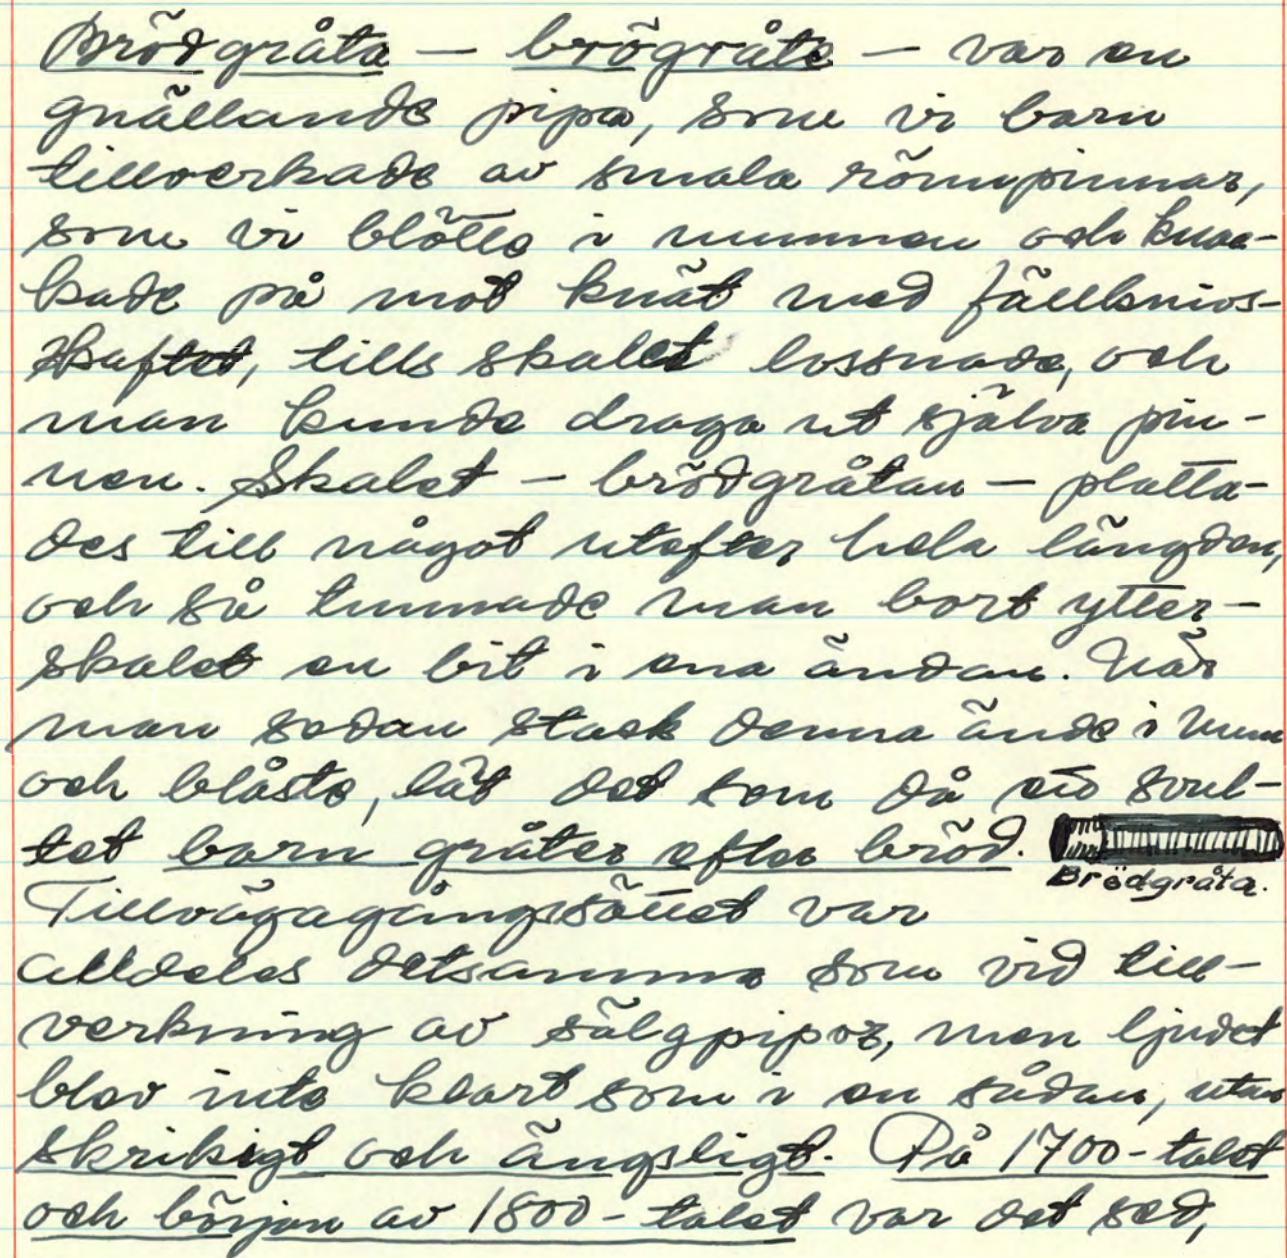 Brödgråta — brögråte — var en
gnällande pipa, som vi barn
tillverkade av smala rönnpinnar,
som vi blötte i munnen och knac-
kade på mot knät med fällknivs-
skaftet, tills skalet lossnade, och
man kunde draga ut själva pin-
nen. Skalet — brödgråtan — platta-
des till något utefter hela längden,
och så tunnade man bort ytter-
skalet en bit i ena ändan. När
man sedan stack denna ände i mun
och blåste, lät det som då ett svul-
tet barn gråter efter bröd.
Brödgråta.
Tillvägagångssättet var
alldeles detsamma som vid till-
verkning av sälgpipor, men ljudet
blev inte klart som i en sådan, utan
skrikigt och ängsligt. På 1700-talet
och början av 1800-talet var det sed,